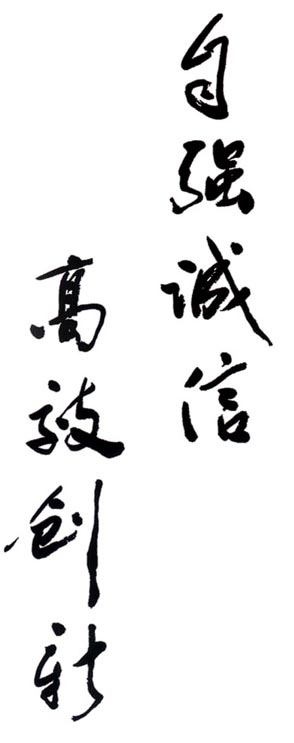 自强诚信
高效创新